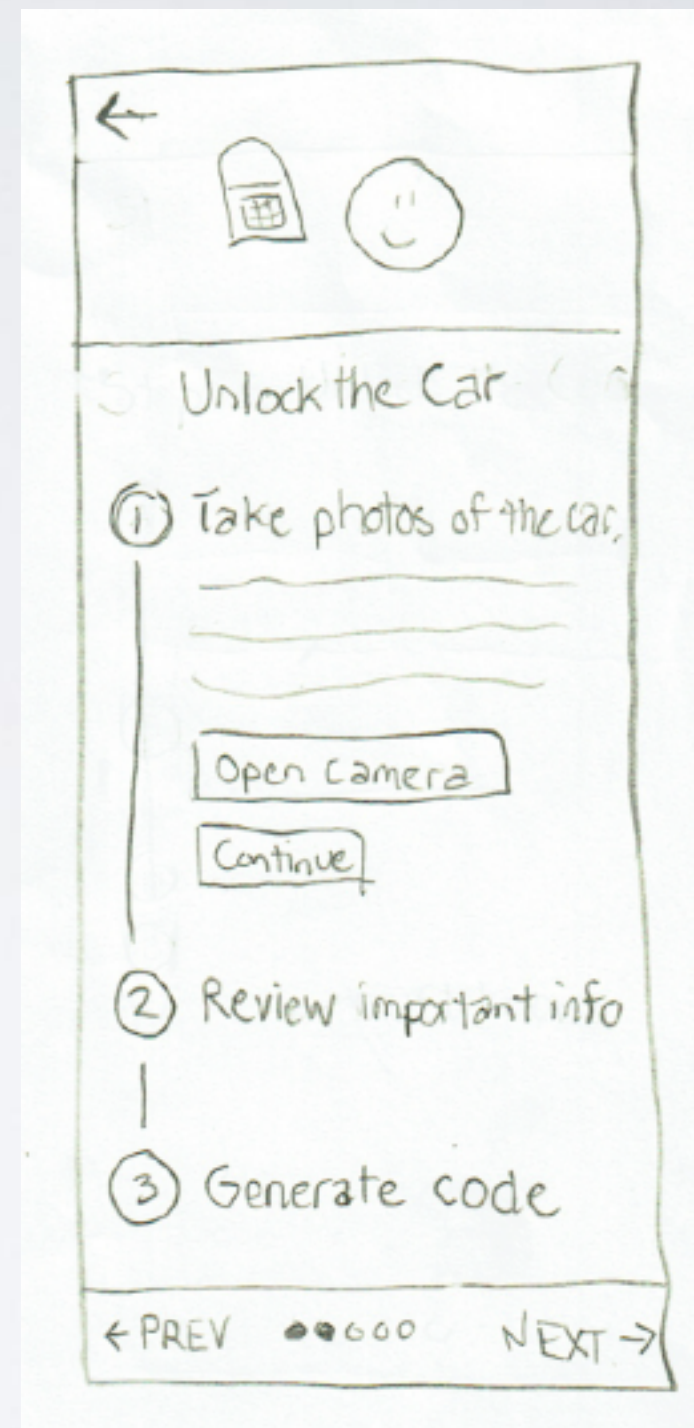 ←
Unlock the Car
1 Take photos of the car.
Open Camera
Continue
2 Review important info
3 Generate code
← PREV NEXT →